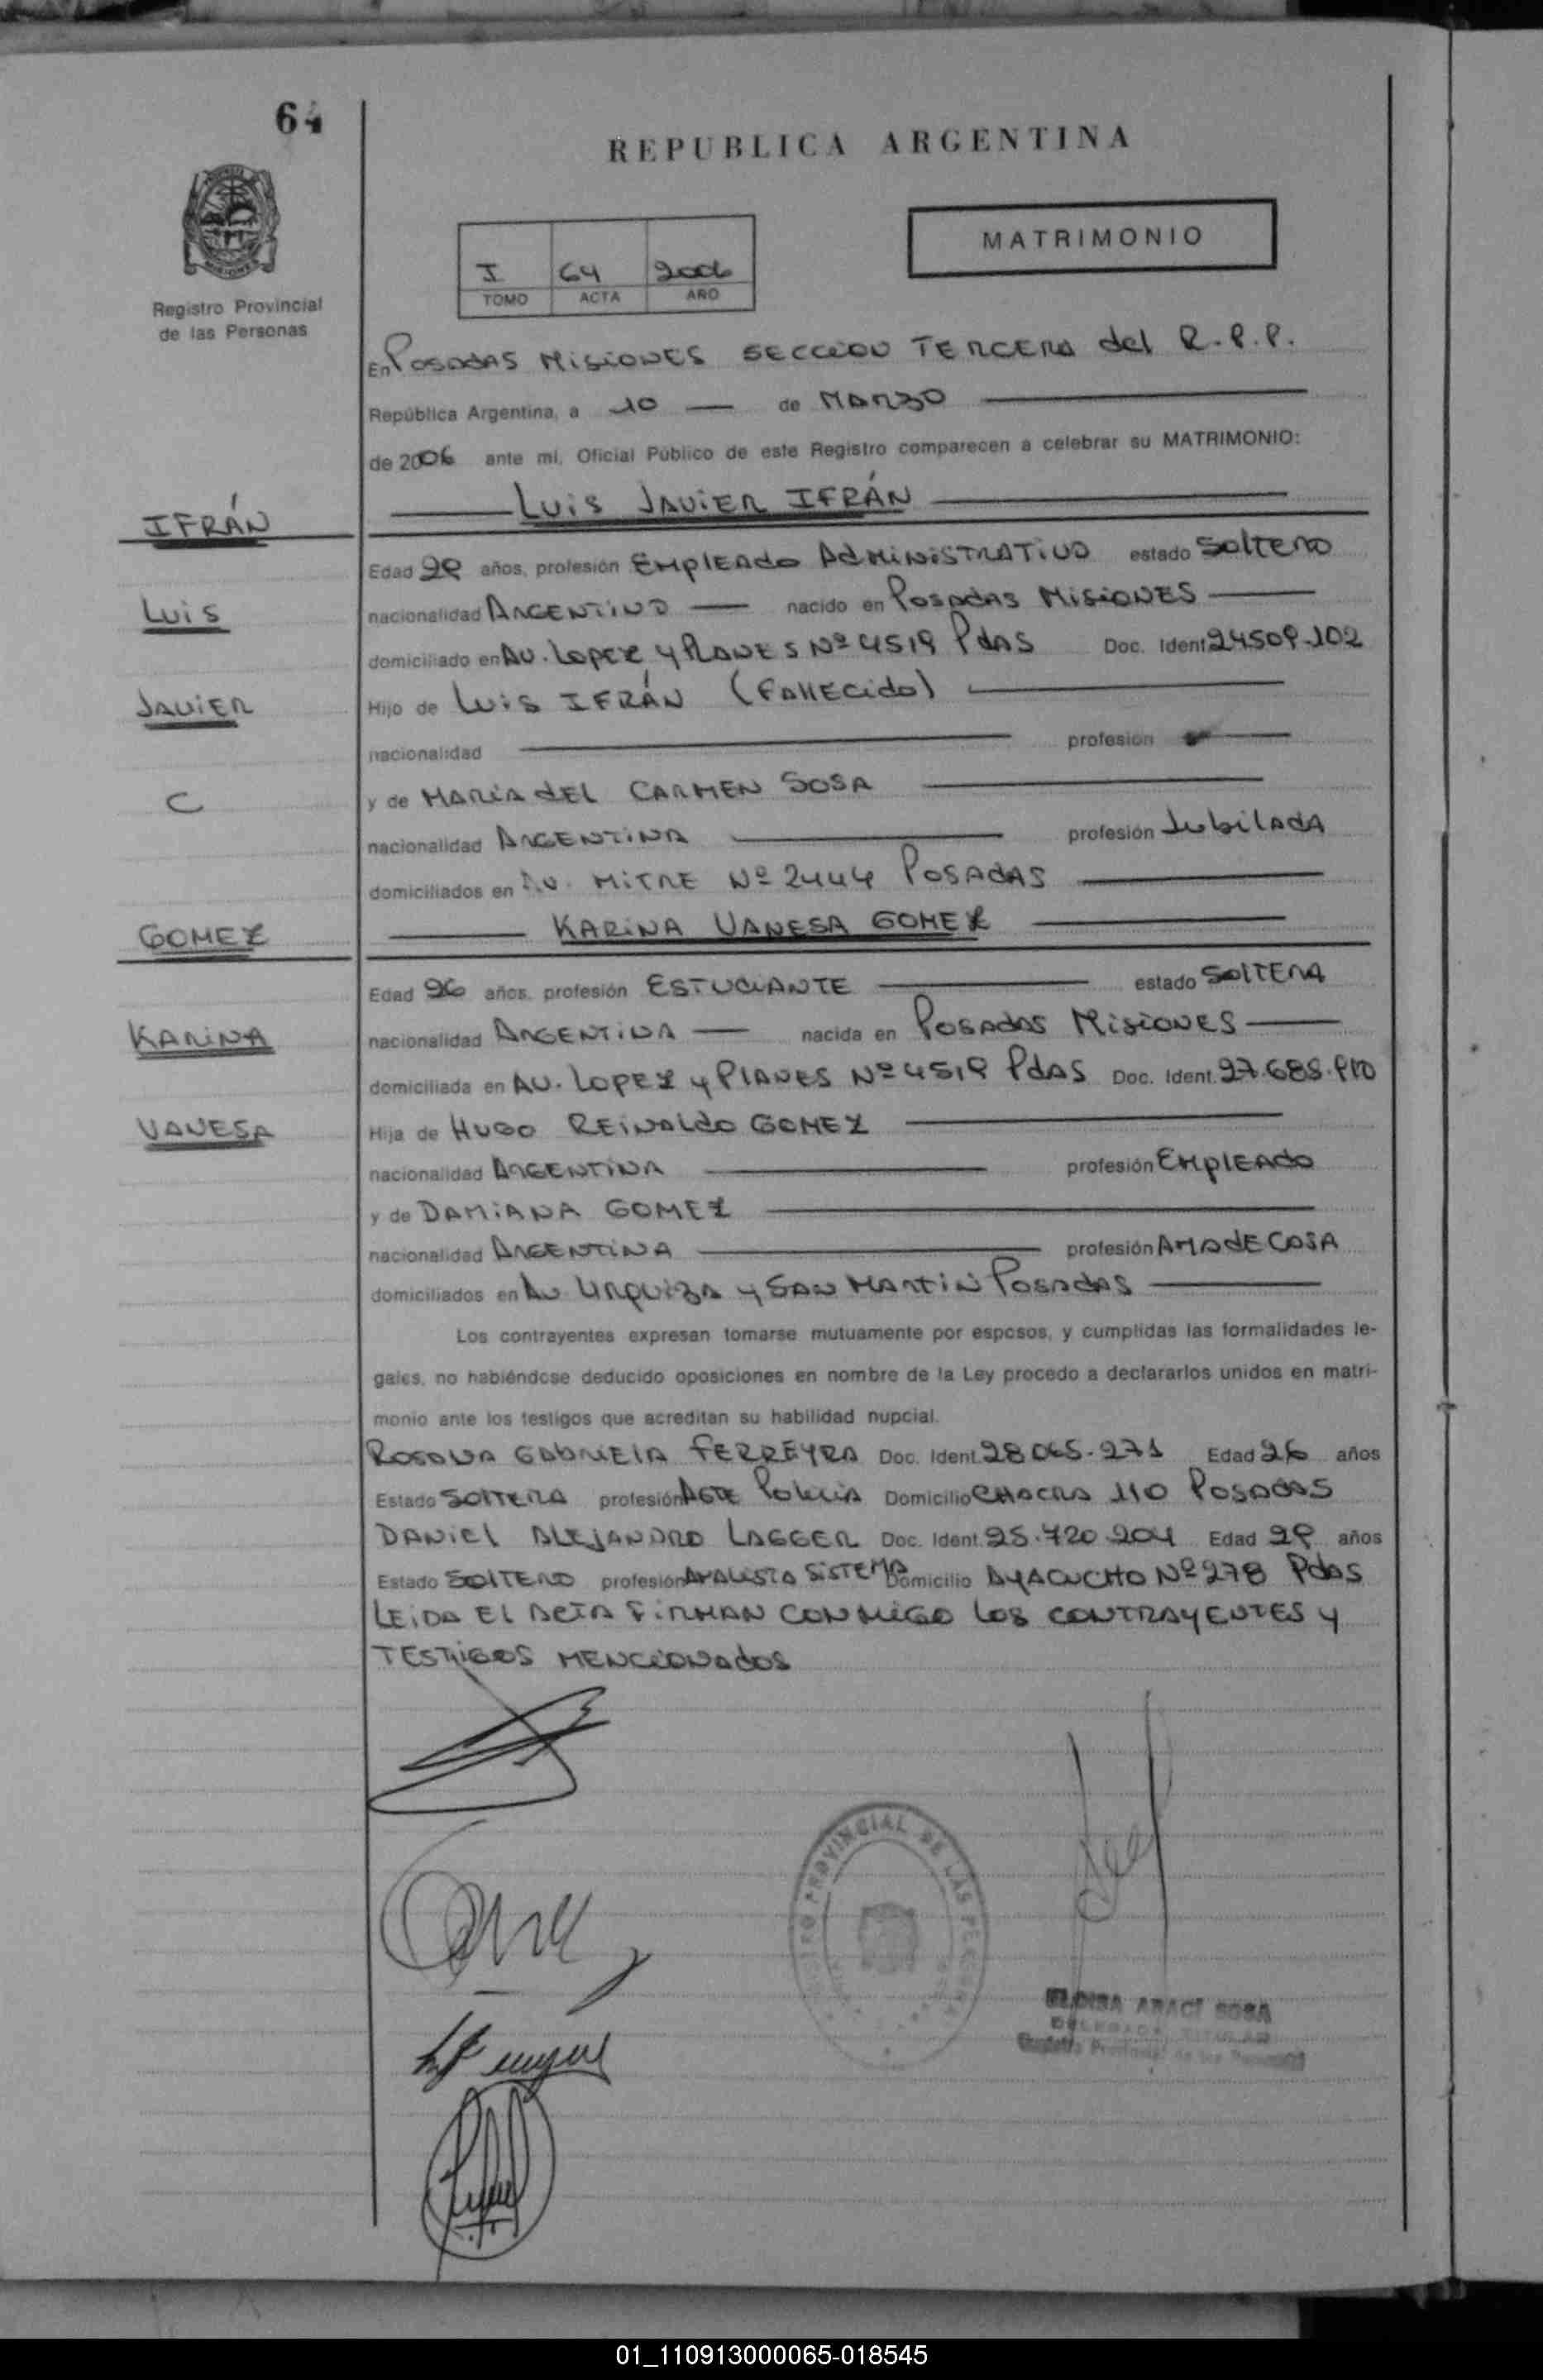 64
REPUBLICA ARGENTINA
MATRIMONIO
I 64 2006
TOMO ACTA AÑO
Registro Provincial
de las Personas
En Posadas Misiones Seccion Tercera del R.P.P.
República Argentina, a 10 de Marzo
de 2006 ante mí, Oficial Público de este Registro comparecen a celebrar su MATRIMONIO:
Luis Javier Ifrán
IFRÁN
Edad 29 años, profesión Empleado Administrativo estado Soltero
Luis
nacionalidad Argentino nacido en Posadas Misiones
domiciliado en Av. Lopez y Planes Nº 4519 Pdas Doc. Ident. 24509.102
Javier
Hijo de Luis Ifrán (Fallecido)
nacionalidad profesión
C
y de Maria del Carmen Sosa
nacionalidad Argentina profesión Jubilada
domiciliados en Av. Mitre Nº 2444 Posadas
GOMEZ
Karina Vanesa Gomez
Edad 26 años, profesión Estudiante estado Soltera
Karina
nacionalidad Argentina nacida en Posadas Misiones
domiciliada en Av. Lopez y Planes Nº 4519 Pdas Doc. Ident.
Vanesa
Hija de Hugo Reinaldo Gomez
nacionalidad Argentina profesión Empleado
y de Damiana Gomez
nacionalidad Argentina profesión Ama de Casa
domiciliados en Av Urquiza y San Martin Posadas
Los contrayentes expresan tomarse mutuamente por esposos, y cumplidas las formalidades le-
gales, no habiéndose deducido oposiciones en nombre de la Ley procedo a declararlos unidos en matri-
monio ante los testigos que acreditan su habilidad nupcial.
Rosana Gabriela Ferreyra Doc. Ident. 28.065.271 Edad 26 años
Estado Soltera profesión Agte Policia Domicilio Chacra 110 Posadas
Daniel Alejandro Lagger Doc. Ident. 25.720.204 Edad 29 años
Estado Soltero profesión Analista Sistema Domicilio Ayacucho Nº 278 Pdas
Leida el acta firman conmigo los contrayentes y
testigos mencionados
REGISTRO PROVINCIAL DE LAS PERSONAS
ELOISA ARACI SOSA
DELEGADA TITULAR
Registro Provincial de las Personas
01_110913000065-018545